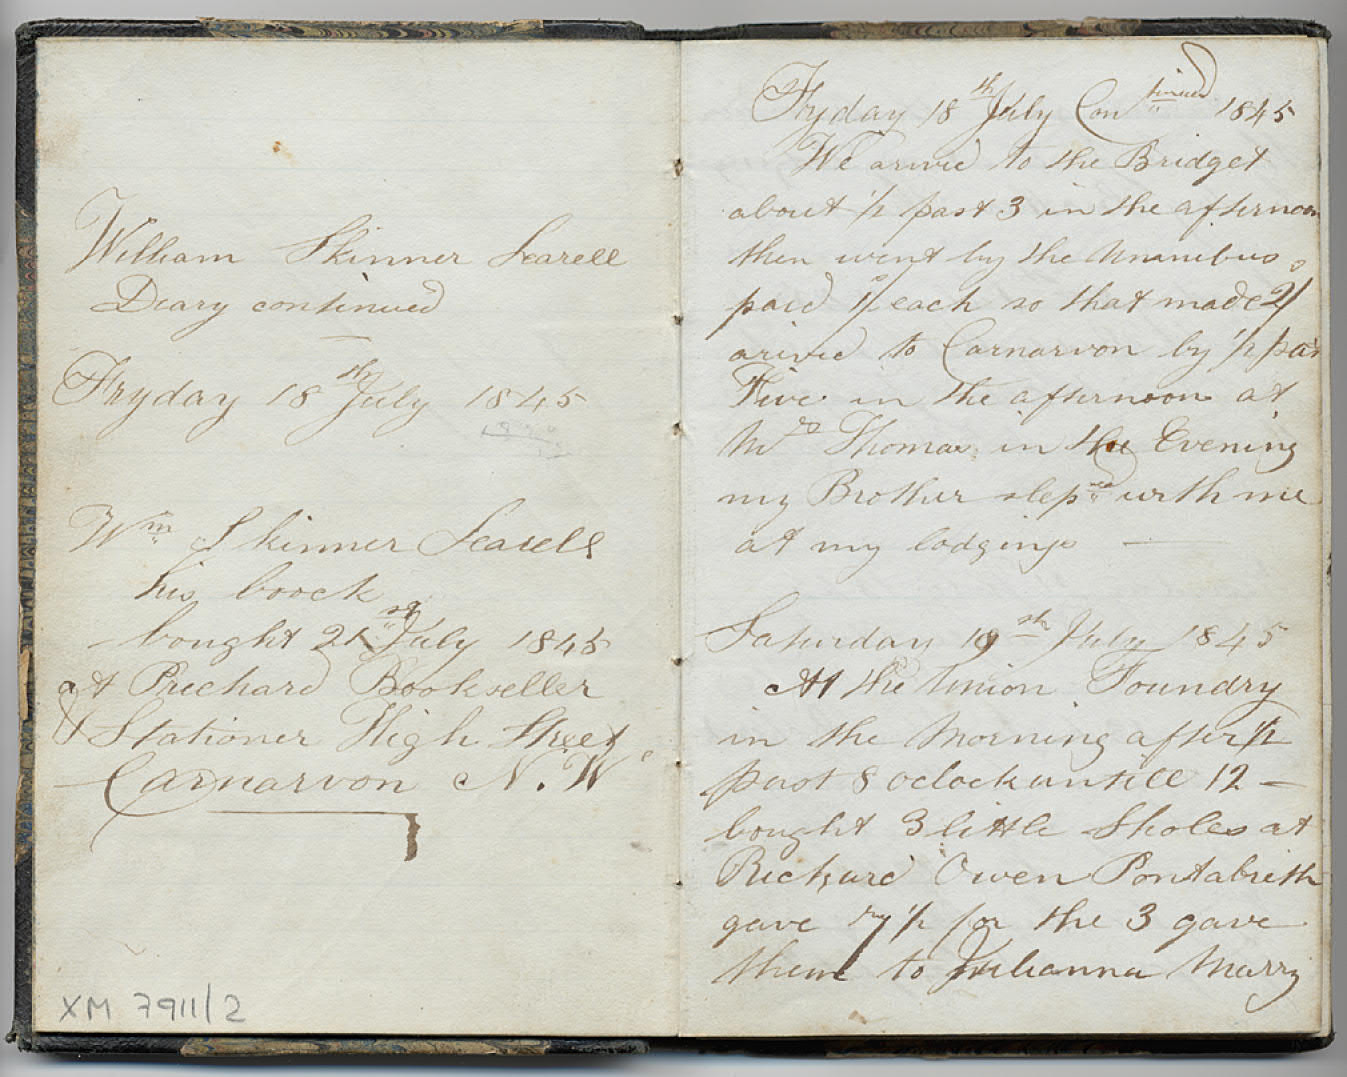 William Skinner Searell
Diary continued
Fryday 18th July 1845
Wm Skinner Searell
his boock
bought 21st July 1845
at Prichard Bookseller
& Stationer High Street
Carnarvon N. W
XM 7911/2
Fryday 18th July Continued 1845
We arived to the Bridget
about 1/2 past 3 in the afternoon
then went by the Omnibus
paid 1/ each so that made 2/
arived to Carnarvon by 1/2 pas
Five in the afternoon at
Mrs Thomas in the Evening
my Brother sleped with me
at my lodgings
Saturday 19th July 1845
At the Union Foundry
in the Morning after 1/2
past 8 oclock untill 12 —
bought 3 little Sholes at
Richard Owen Pontabrith
gave 1/2 for the 3 gave
them to Julianna Marry